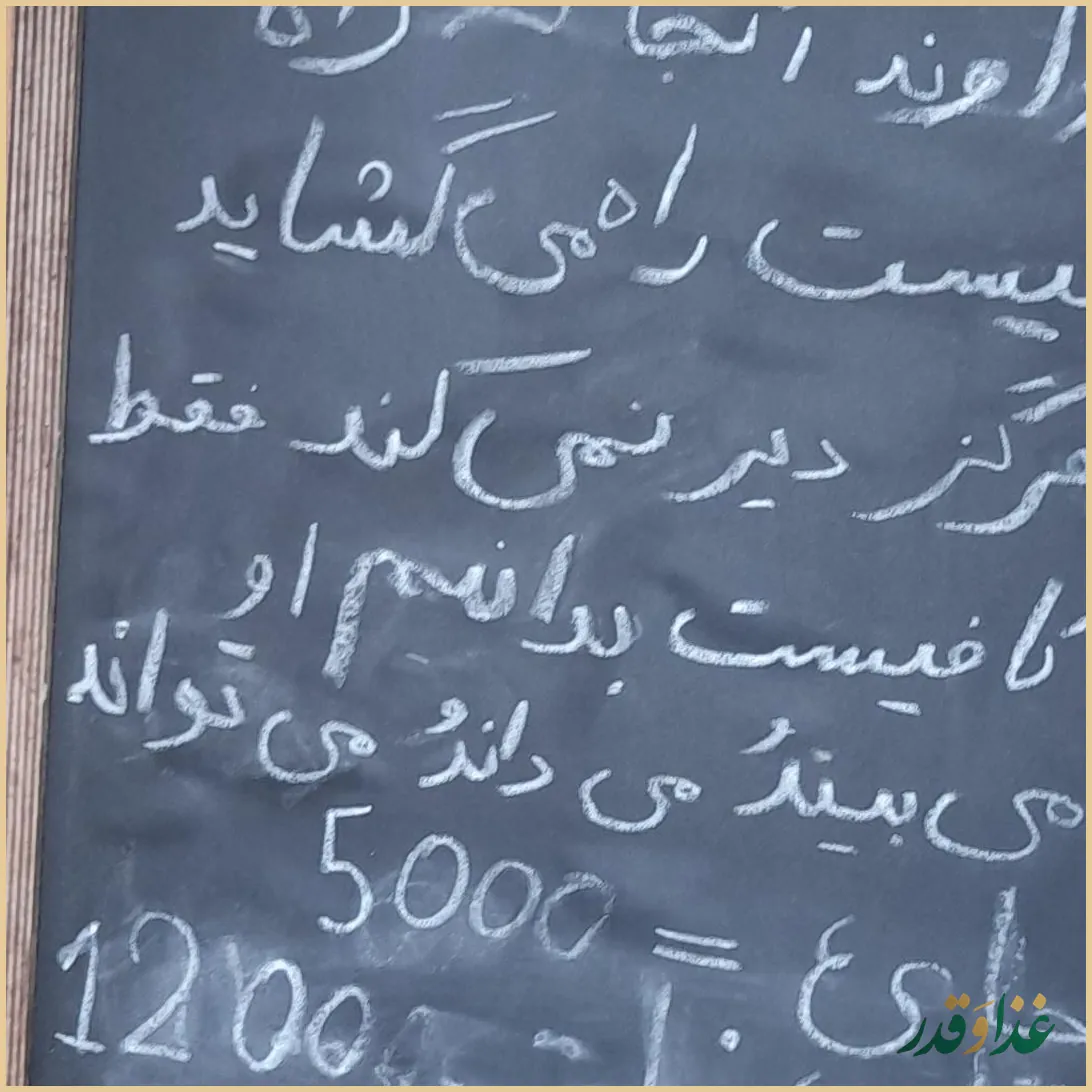 آنجا که راه
نیست راه می گشاید
هرگز دیر نمی کند فقط
کافیست بدانیم او
می بیندُ می داندُ می تواند
چای = 5000
1200
غذا و قدر